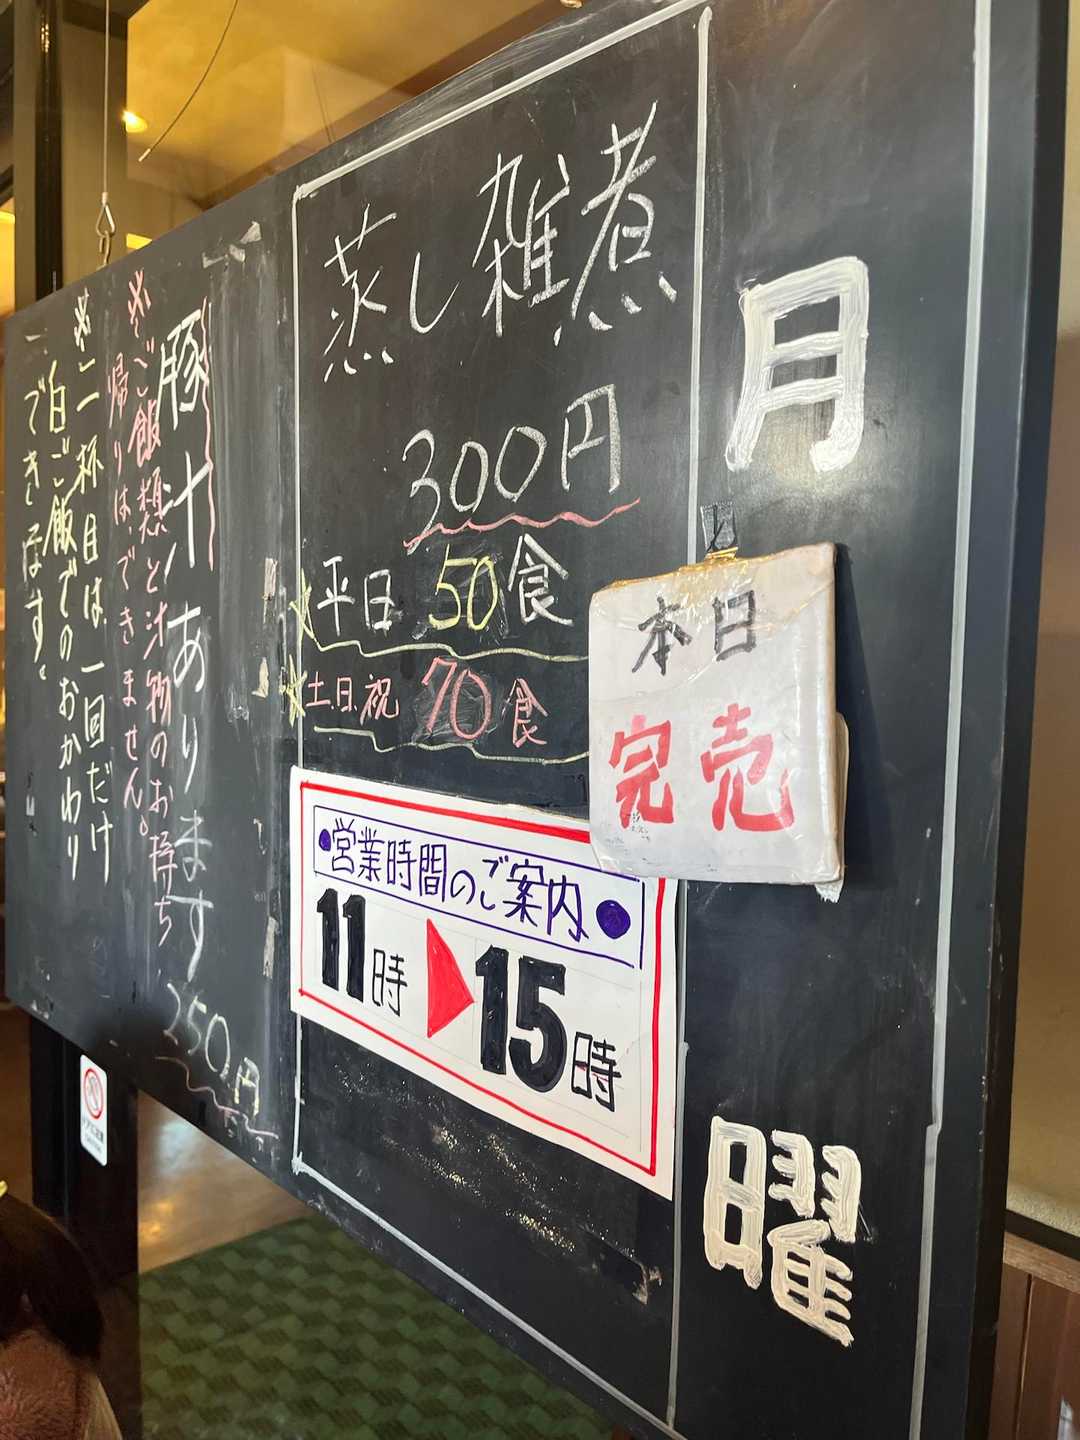 月
曜
蒸し雑煮
300円
平日 50食
土日祝 70食
本日
完売
●営業時間のご案内●
11時▶15時
豚汁あります 250円
※ご飯類と汁物のお持ち
帰りは、できません。
※二杯目は、一回だけ
白ご飯でのおかわり
できます。